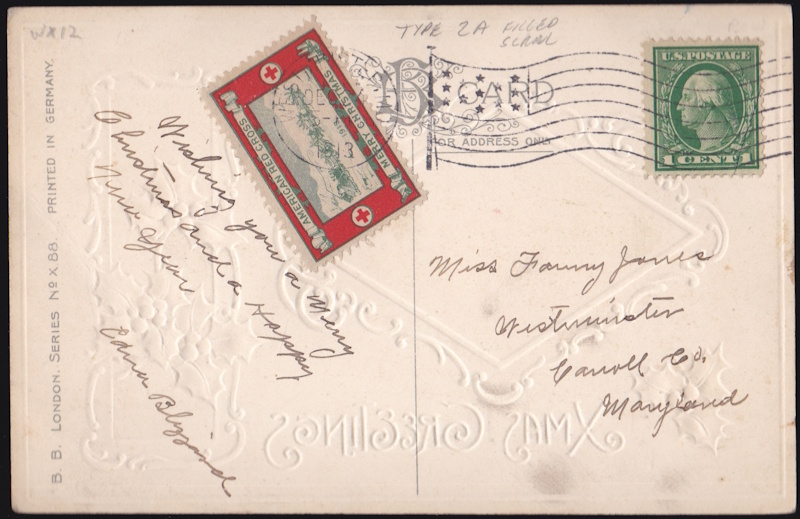 WX12
TYPE 2A FILLED
SCROLL
CARD
FOR ADDRESS ONLY
U.S. POSTAGE
1 CENT 1
AMERICAN RED CROSS
MERRY CHRISTMAS
DEC
1913
Wishing you a Merry
Christmas and a Happy
New Year
Edna Blizzard
Miss Fanny Jones
Westminster
Carroll Co.
Maryland
XMAS GREETINGS
B. B. LONDON. SERIES No X 88. PRINTED IN GERMANY.